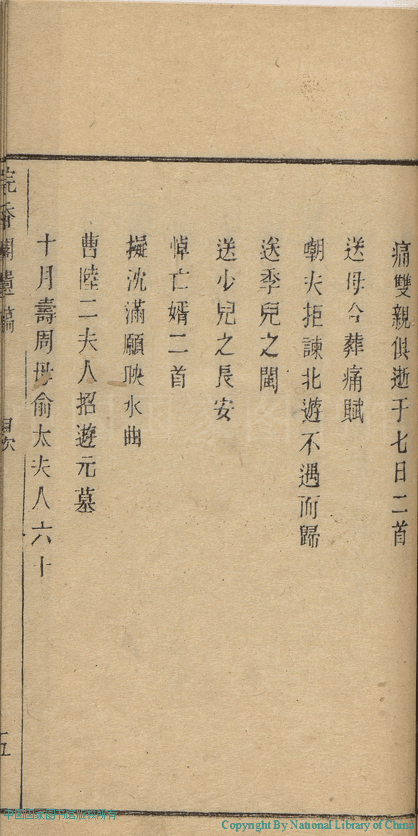 痛雙親俱逝于七日二首
送母合葬痛賦
嘲夫拒諫北遊不遇而歸
送季兒之閩
送少兒之長安
悼亡婿二首
擬沈滿願映水曲
曹陸二夫人招遊元墓
十月壽周母俞太夫人六十
香閣遺稿 目次 五
中国国家图书馆版权所有
Copyright By National Library of China